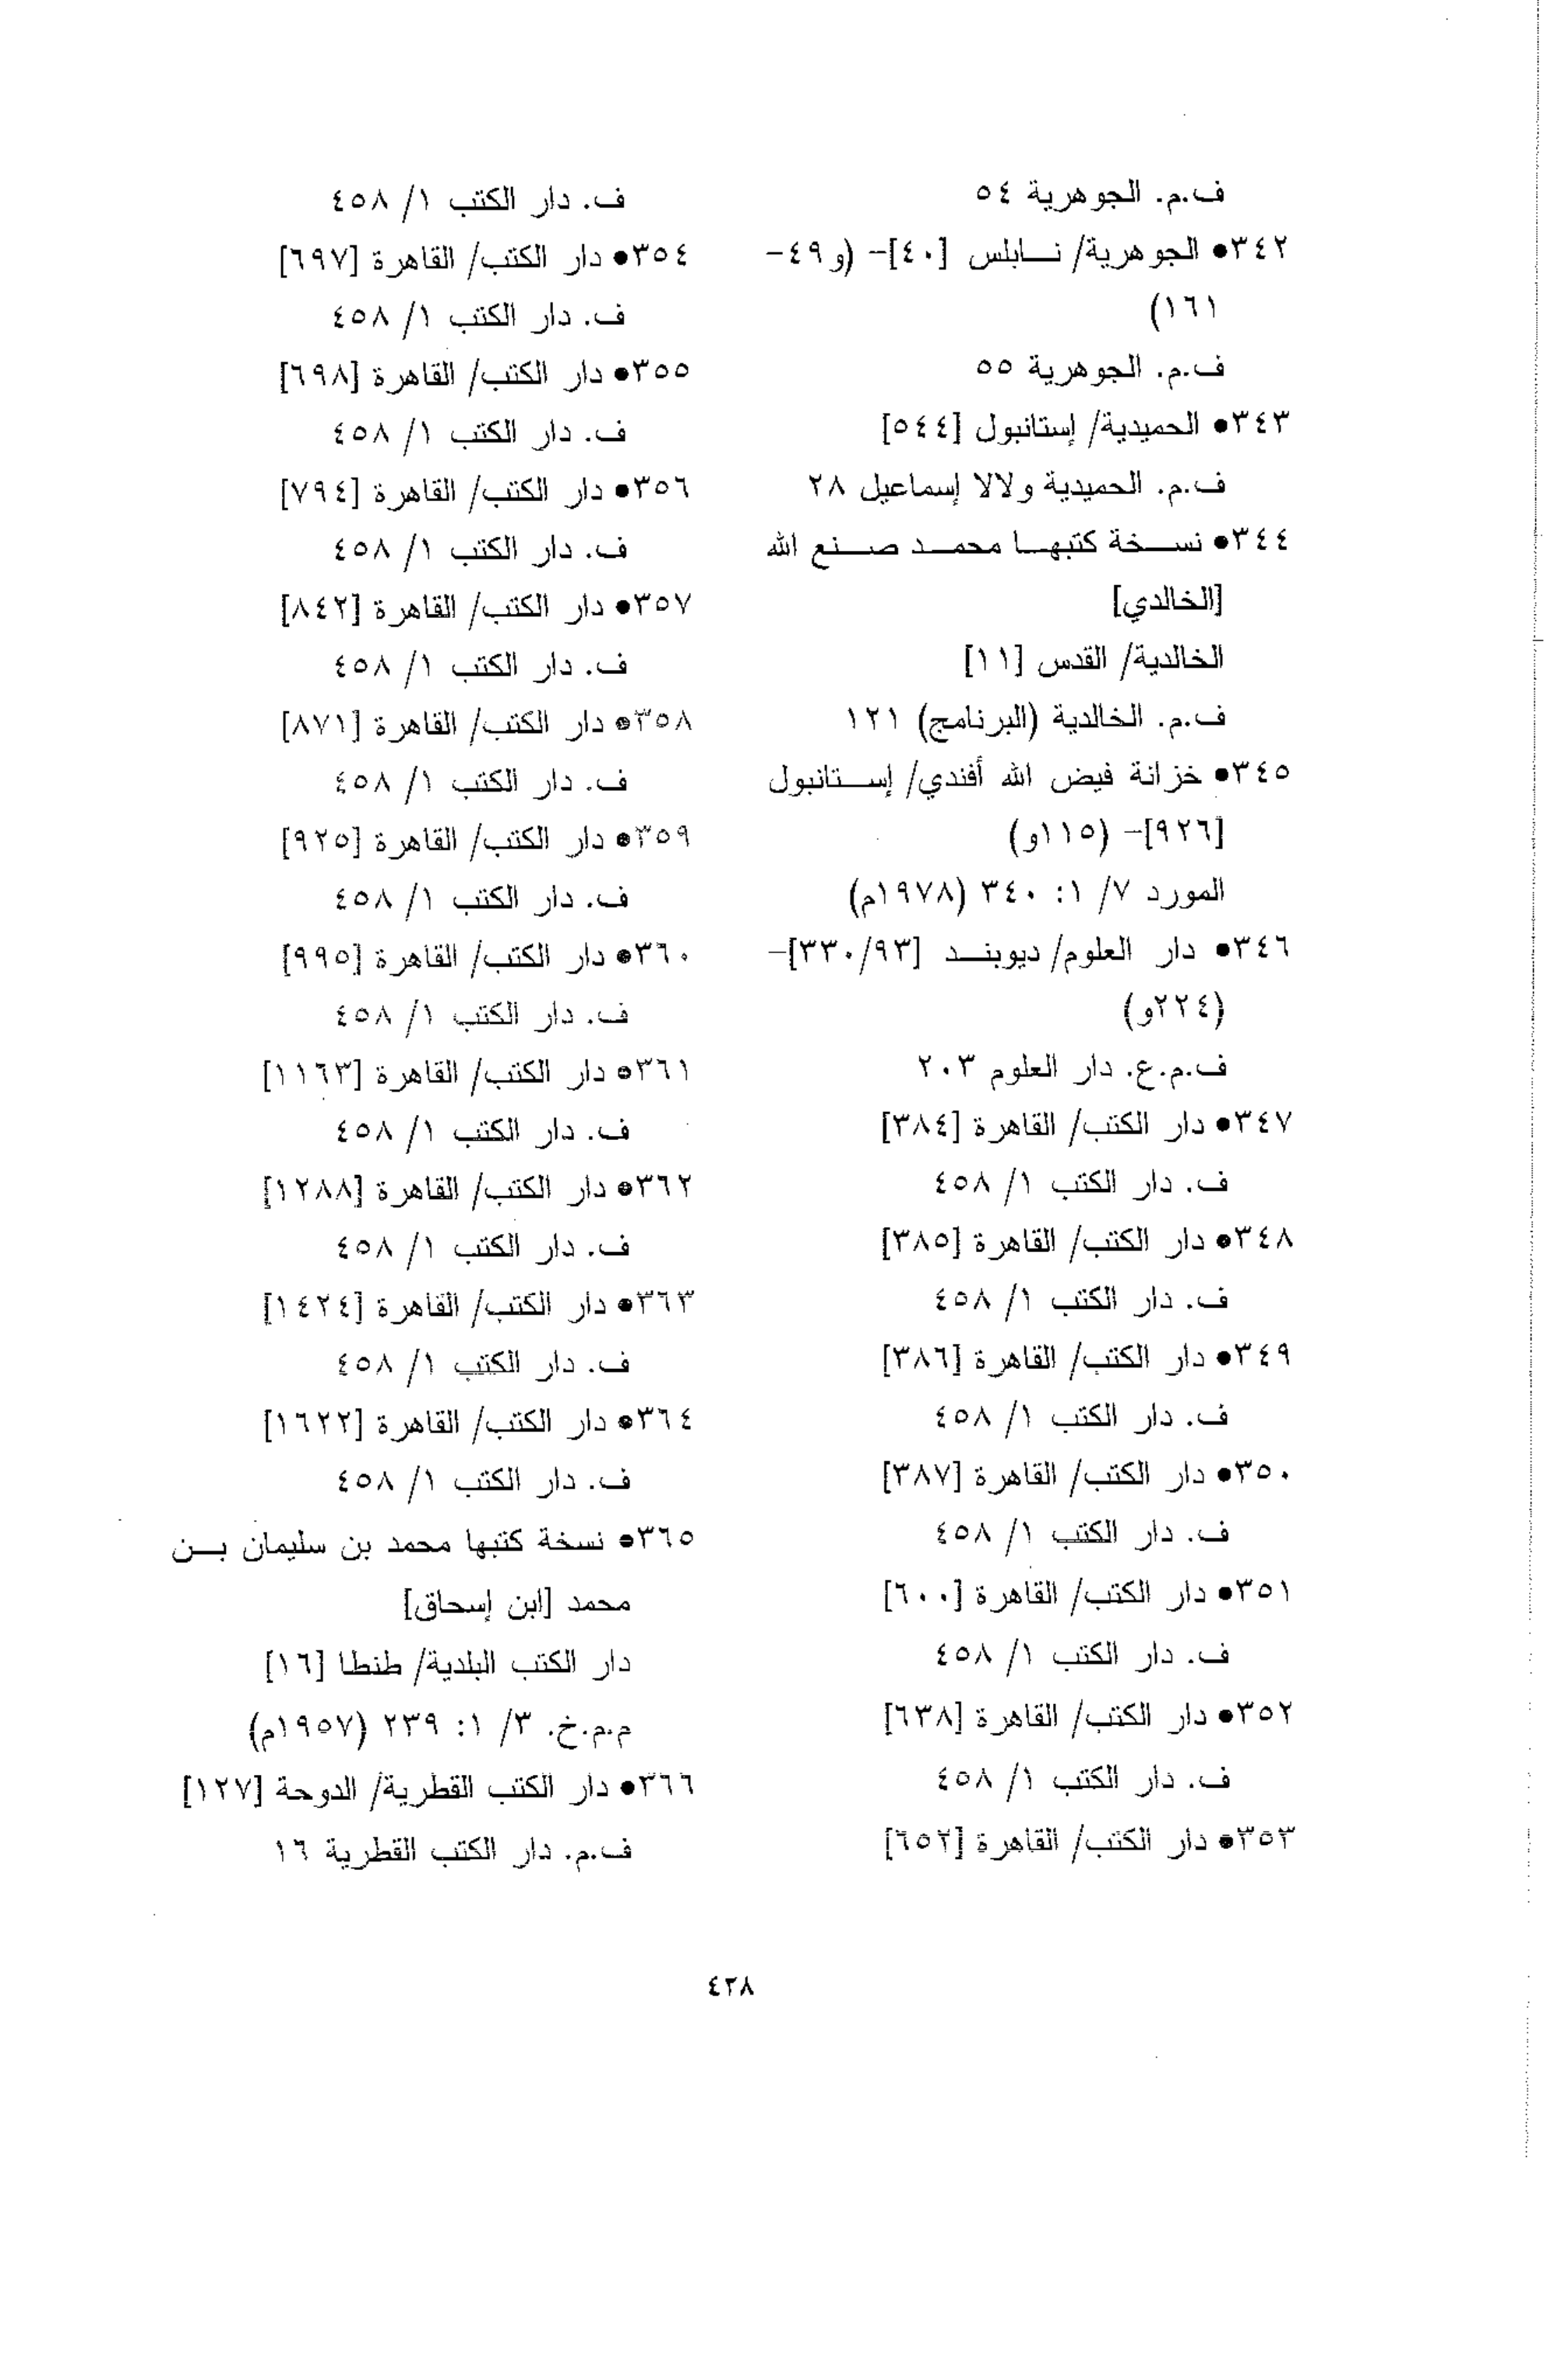 ف.م. الجوهرية ٥٤
٣٤٢● الجوهرية/ نابلس [٤٠]- (و٤٩-
١٦١)
ف.م. الجوهرية ٥٥
٣٤٣● الحميدية/ إستانبول [٥٤٤]
ف.م. الحميدية ولالا إسماعيل ٢٨
٣٤٤● نسخة كتبها محمد صنع الله
[الخالدي]
الخالدية/ القدس [١١]
ف.م. الخالدية (البرنامج) ١٢١
٣٤٥● خزانة فيض الله أفندي/ إستانبول
[٩٢٦]- (١١٥و)
المورد ٧/ ١: ٣٤٠ (١٩٧٨م)
٣٤٦● دار العلوم/ ديوبند [٣٣٠/٩٣]-
(٢٢٤و)
ف.م.ع. دار العلوم ٢٠٣
٣٤٧● دار الكتب/ القاهرة [٣٨٤]
ف. دار الكتب ١/ ٤٥٨
٣٤٨● دار الكتب/ القاهرة [٣٨٥]
ف. دار الكتب ١/ ٤٥٨
٣٤٩● دار الكتب/ القاهرة [٣٨٦]
ف. دار الكتب ١/ ٤٥٨
٣٥٠● دار الكتب/ القاهرة [٣٨٧]
ف. دار الكتب ١/ ٤٥٨
٣٥١● دار الكتب/ القاهرة [٦٠٠]
ف. دار الكتب ١/ ٤٥٨
٣٥٢● دار الكتب/ القاهرة [٦٣٨]
ف. دار الكتب ١/ ٤٥٨
٣٥٣● دار الكتب/ القاهرة [٦٥٢]
ف. دار الكتب ١/ ٤٥٨
٣٥٤● دار الكتب/ القاهرة [٦٩٧]
ف. دار الكتب ١/ ٤٥٨
٣٥٥● دار الكتب/ القاهرة [٦٩٨]
ف. دار الكتب ١/ ٤٥٨
٣٥٦● دار الكتب/ القاهرة [٧٩٤]
ف. دار الكتب ١/ ٤٥٨
٣٥٧● دار الكتب/ القاهرة [٨٤٢]
ف. دار الكتب ١/ ٤٥٨
٣٥٨● دار الكتب/ القاهرة [٨٧١]
ف. دار الكتب ١/ ٤٥٨
٣٥٩● دار الكتب/ القاهرة [٩٢٥]
ف. دار الكتب ١/ ٤٥٨
٣٦٠● دار الكتب/ القاهرة [٩٩٥]
ف. دار الكتب ١/ ٤٥٨
٣٦١● دار الكتب/ القاهرة [١١٦٣]
ف. دار الكتب ١/ ٤٥٨
٣٦٢● دار الكتب/ القاهرة [١٢٨٨]
ف. دار الكتب ١/ ٤٥٨
٣٦٣● دار الكتب/ القاهرة [١٤٢٤]
ف. دار الكتب ١/ ٤٥٨
٣٦٤● دار الكتب/ القاهرة [١٦٢٢]
ف. دار الكتب ١/ ٤٥٨
٣٦٥● نسخة كتبها محمد بن سليمان بن
محمد [ابن إسحاق]
دار الكتب البلدية/ طنطا [١٦]
م.م.خ. ٣/ ١: ٢٣٩ (١٩٥٧م)
٣٦٦● دار الكتب القطرية/ الدوحة [١٢٧]
ف.م. دار الكتب القطرية ١٦
٤٢٨